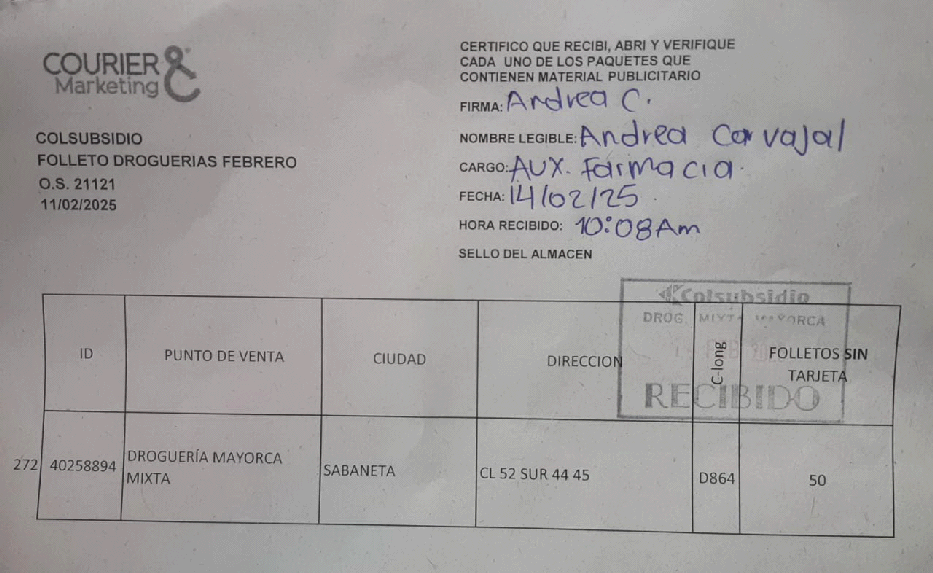 COURIER &
Marketing
COLSUBSIDIO
FOLLETO DROGUERIAS FEBRERO
O.S. 21121
11/02/2025
CERTIFICO QUE RECIBI, ABRI Y VERIFIQUE
CADA UNO DE LOS PAQUETES QUE
CONTIENEN MATERIAL PUBLICITARIO
FIRMA: Andrea C.
NOMBRE LEGIBLE: Andrea Carvajal
CARGO: AUX. Farmacia.
FECHA: 14/02/25
HORA RECIBIDO: 10:08 Am
SELLO DEL ALMACEN
Colsubsidio
DROG. MIXTA MAYORCA
RECIBIDO
ID PUNTO DE VENTA CIUDAD DIRECCION C-long FOLLETOS SIN TARJETA
272 40258894 DROGUERÍA MAYORCA MIXTA SABANETA CL 52 SUR 44 45 D864 50